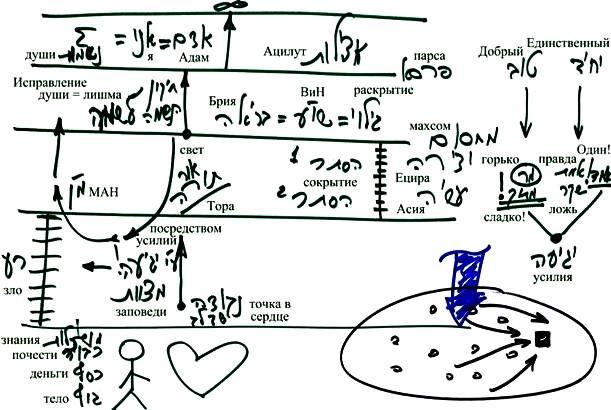 ∞
души
נשמות
Σ = אני = אדם
я
Адам
Ацилут
אצילות
парса
פרסה
Добрый
Единственный
טוב
יחיד
Исправление
души = лишма
תיקון
הנשמה = לשמה
Брия
ВиН
раскрытие
גילוי = שו"ע = בריאה
махсом
מחסום
свет
אור
תורה
Тора
מ"ן
МАН
1 הסתר
сокрытие
2 הסתר
יצירה
Ецира
עשיה
Асия
горько
правда
Один!
מר
אמת
מתוק!
שקר
сладко!
ложь
יגיעה
усилия
посредством
усилий
ע"י יגיעה!
רע
зло
מצוות
заповеди
נקודה
שבלב
точка в
сердце
знания
почести
כבוד
деньги
כסף
тело
גוף